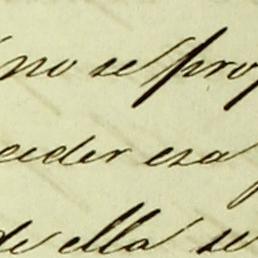 no se prop
ceder esa
de ella se